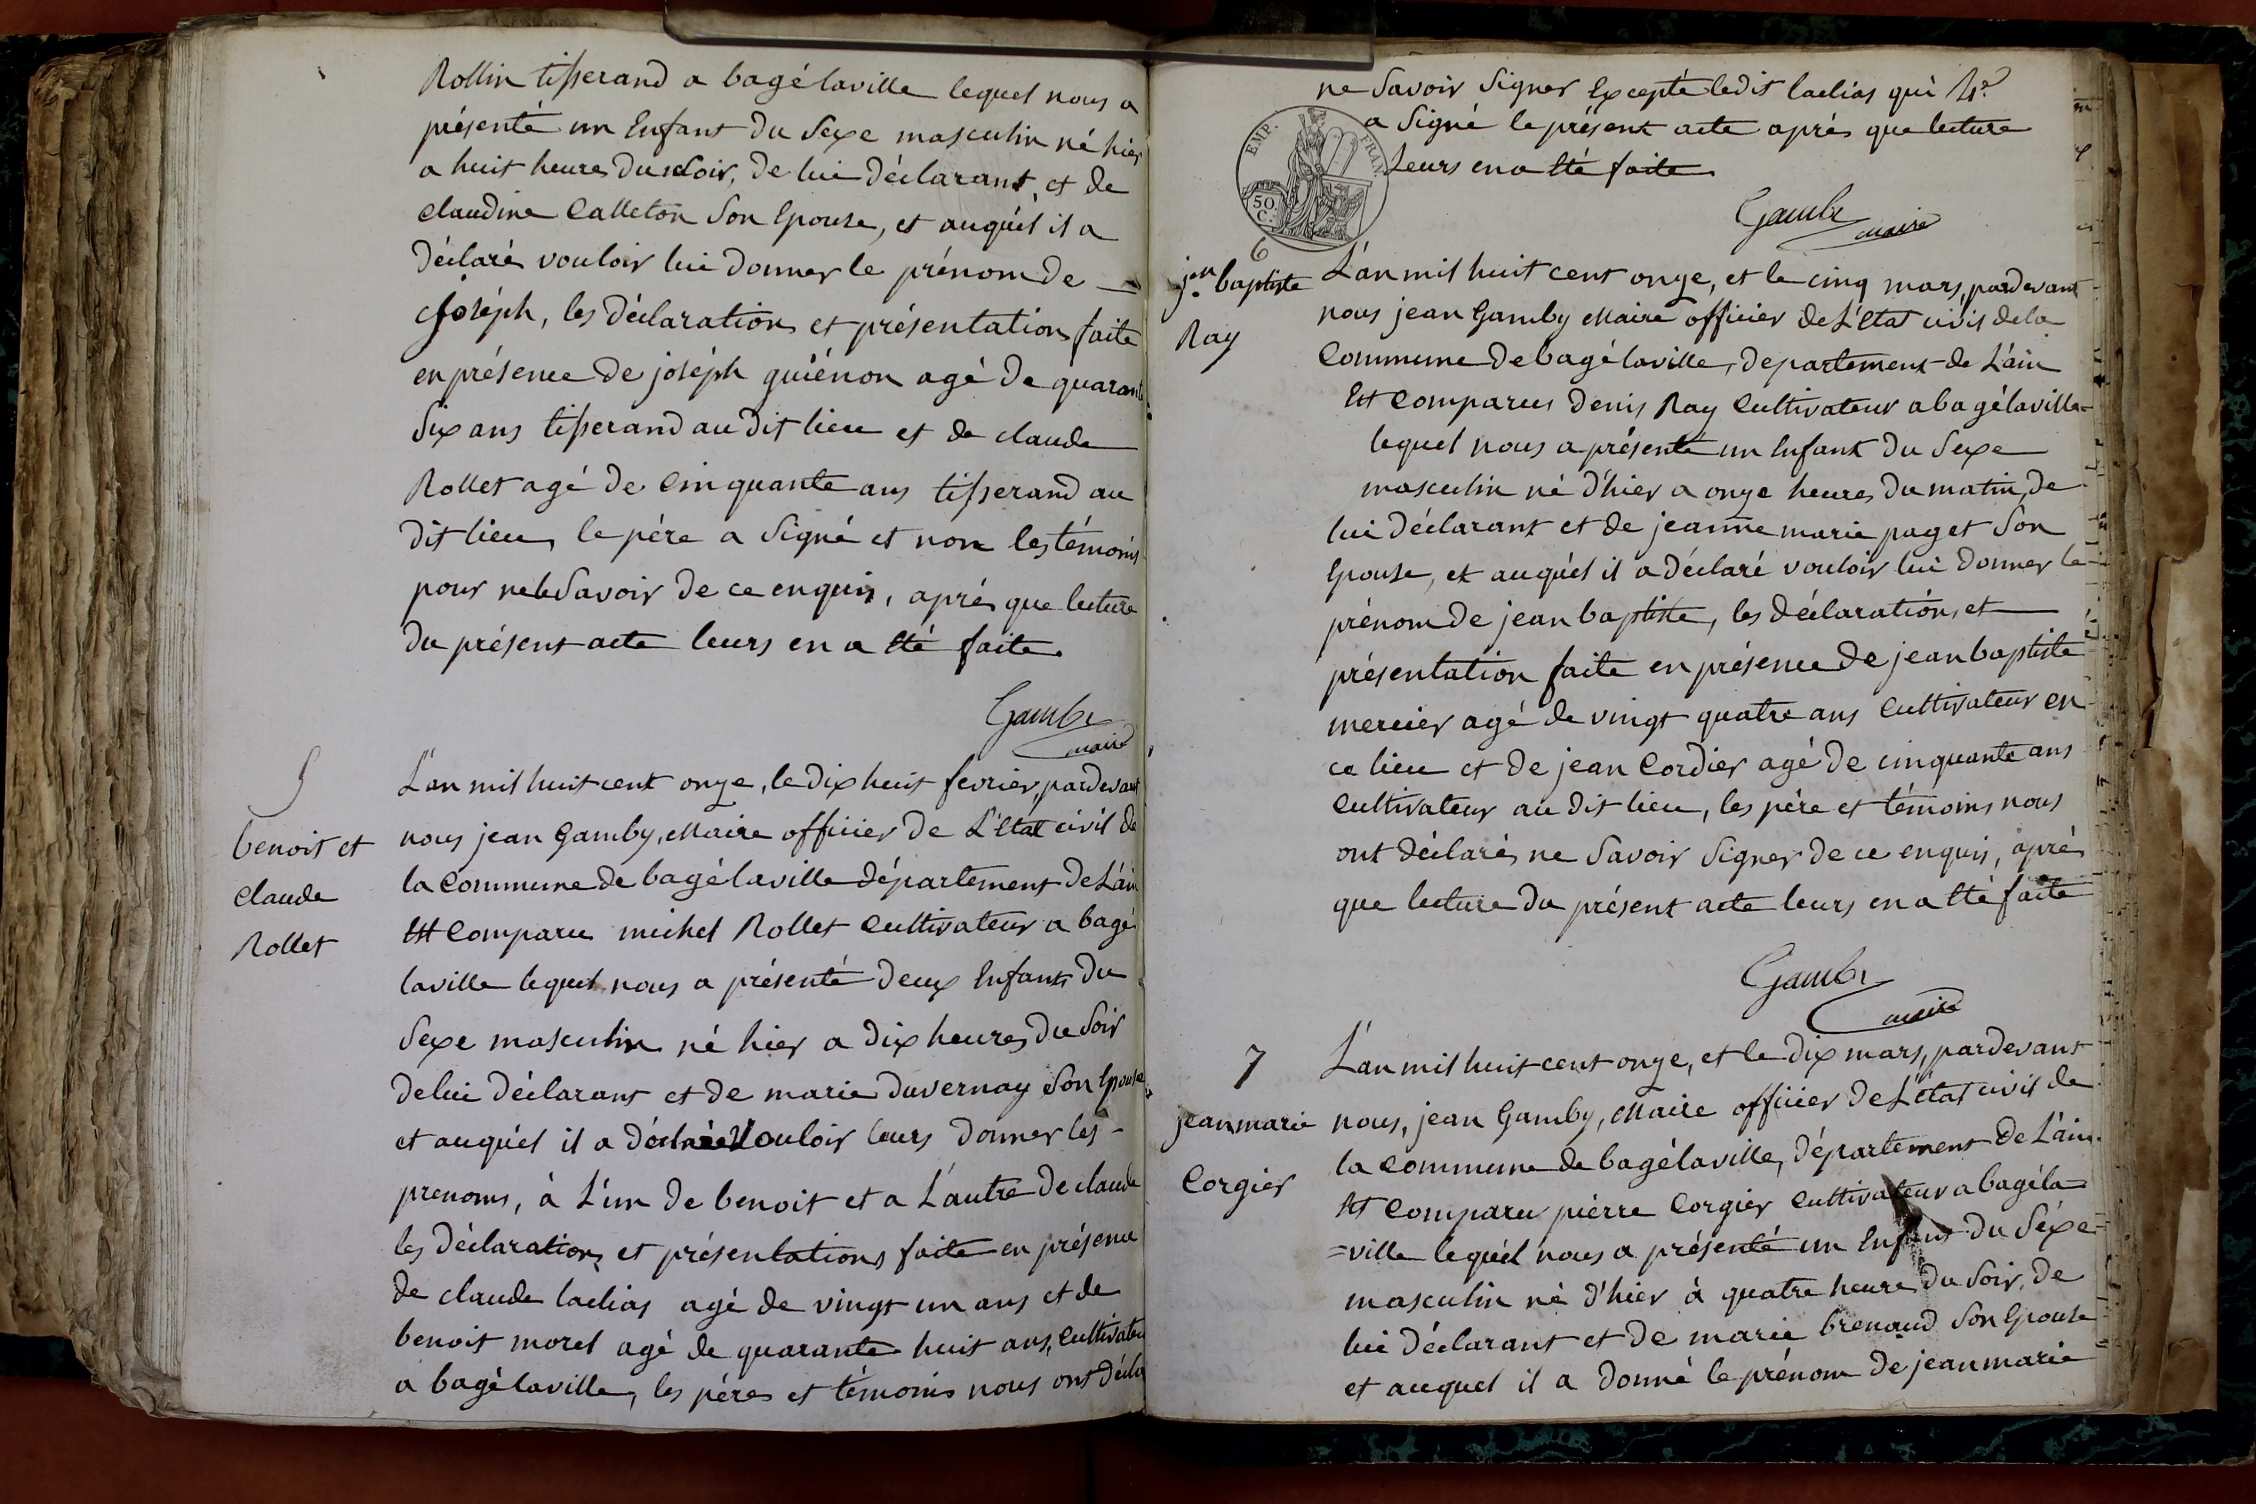 Rollin tisserand a bagé laville lequel nous a
présenté un Enfant du Sexe masculin né hier
a huit heures du Soir, de lui déclarant, et de
claudine Calleton Son Epouse, et auquél il a
déclaré vouloir lui donner le prénom de
joséph, les déclaration et présentation faite
en présence de joséph guiénon agé de quarante
Six ans tisserand au dit lieu et de claude
Rollet agé de Cinquante ans tisserand au
dit lieu, le pére a Signé et non les témoins
pour ne le Savoir de ce enquis, aprés que lecture
du présent acte leurs en a Eté faite.
Gamby
maire
5
benoit et
claude
Rollet
L'an mil huit cent onze, le dix huit fevrier, pardevant
nous jean Gamby, Maire officier de L'Etat civil de
la Commune de bagé laville département de L'ain
Est Comparu michel Rollet Cultivateur a bagé
laville lequel nous a présenté deux Enfants du
Sexe masculin né hier a dix heures du Soir
de lui déclarant et de marie duvernay Son Epouse
et auquél il a déclaré Vouloir leurs donner les
prenoms, à L'un de benoit et a L'autre de claude
les déclarations et présentations faite en présence
de claude laclias agé de vingt un ans et de
benoit morel agé de quarante huit ans, Cultivateur
a bagé laville, les péres et témoins nous ont décla
EMP. FRAN.
50
C.
ne Savoir Signer Excepté ledit laclias qui
a Signé le présent acte aprés que lecture
Leurs en a Eté faite
Gamby
maire
6
jn. baptiste
Ray
L'an mil huit cent onze, et le cinq mars, pardevant
nous jean Gamby Maire officier de L'Etat civil de la
Commune de bagé laville, departement de L'ain
Est Comparus denis Ray Cultivateur a bagé laville
lequel nous a présenté un Enfant du Sexe
masculin né d'hier a onze heures du matin, de
lui déclarant et de jeanne marie paget Son
Epouse, et auquél il a déclaré vouloir lui donner le
prénom de jean baptiste, les déclaration, et
présentation faite en présence de jean baptiste
mercier agé de vingt quatre ans Cultivateur en
ce lieu et de jean Cordier agé de cinquante ans
Cultivateur au dit lieu, les pére et témoins nous
ont déclaré, ne Savoir Signer de ce enquis, aprés
que lecture du présent acte leurs en a Eté faite
Gamby
maire
7
jean marie
Corgier
L'an mil huit cent onze, et le dix mars, pardevant
nous, jean Gamby, Maire officier de L'état civil de
la Commune de bagé laville, département de L'ain
Est Comparu piérre Corgier Cultivateur a bagé la
=ville lequél nous a présenté un Enfant du Séxe
masculin né d'hier à quatre heure du Soir, de
lui déclarant et de marie brenaud Son Epouse
et auquel il a donné le prénom de jean marie